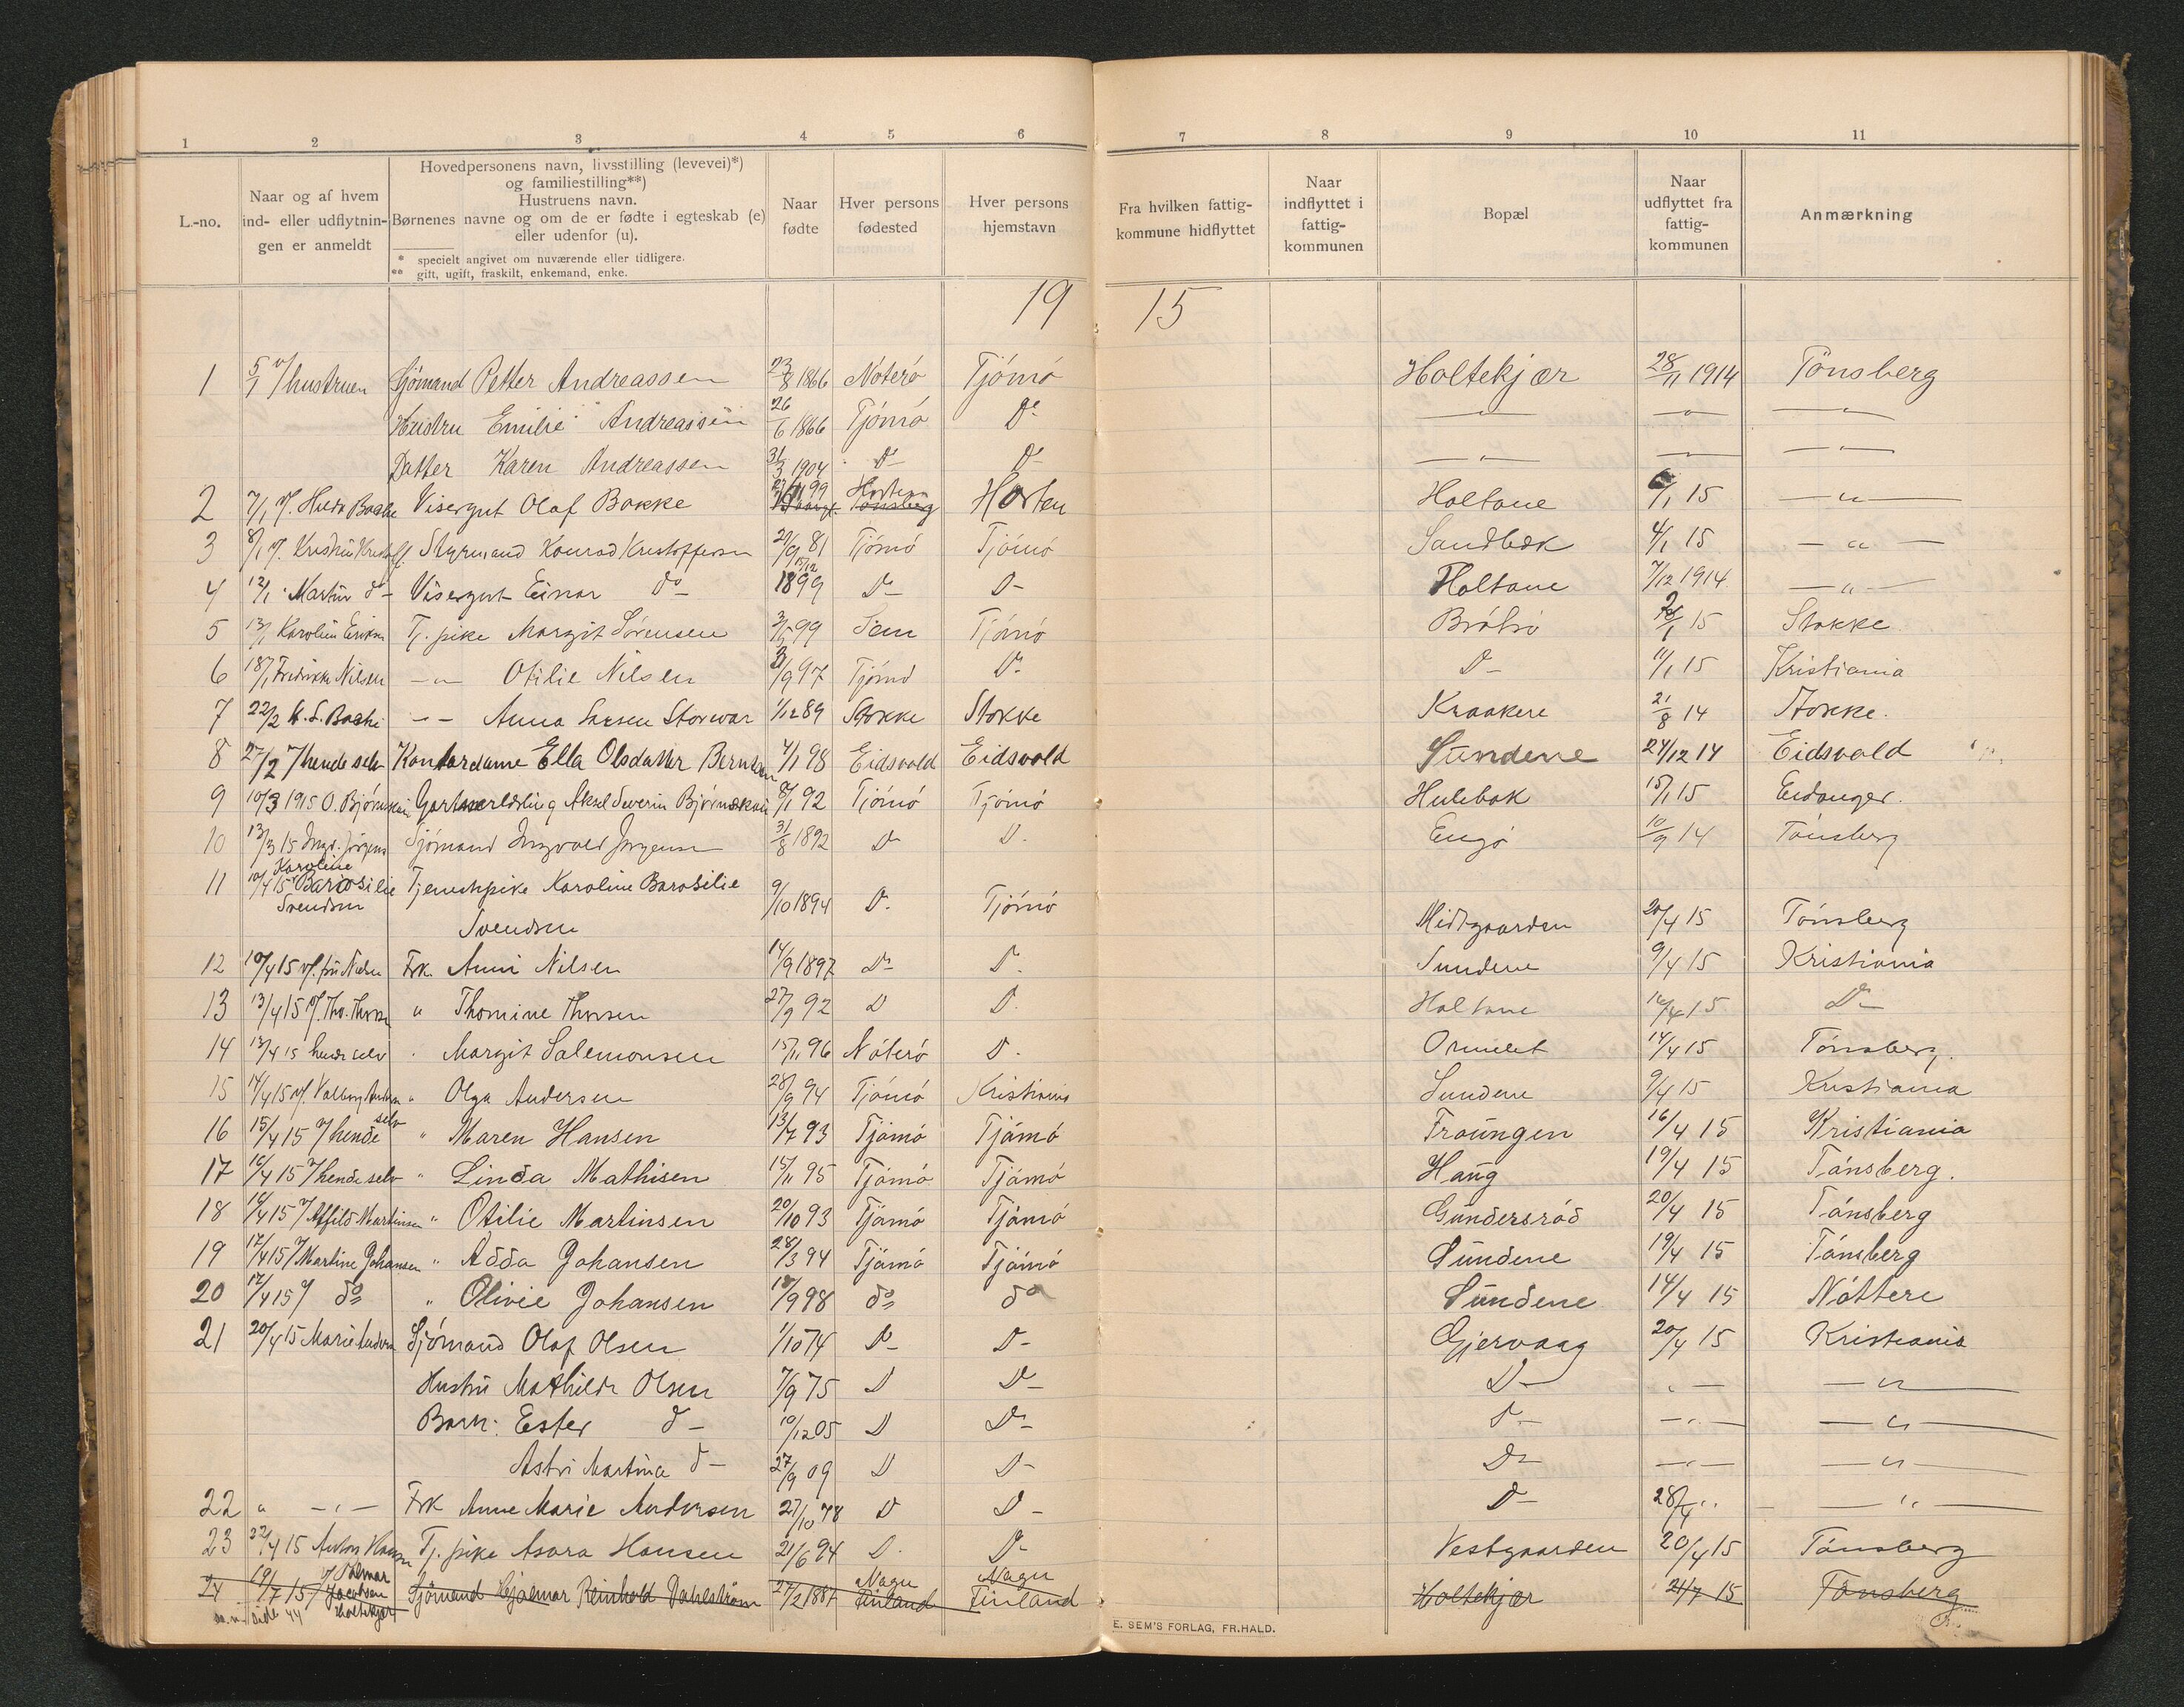 1 2 3 4 5 6 7 8 9 10 11
L.-no.
Naar og af hvem
ind- eller udflytnin-
gen er anmeldt
Hovedpersonens navn, livsstilling (levevei)*)
og familiestilling**)
Hustruens navn.
Børnenes navne og om de er fødte i egteskab (e)
eller udenfor (u).
* specielt angivet om nuværende eller tidligere.
** gift, ugift, fraskilt, enkemand, enke.
Naar
fødte
Hver persons
fødested
Hver persons
hjemstavn
Fra hvilken fattig-
kommune hidflyttet
Naar
indflyttet i
fattig-
kommunen
Bopæl
Naar
udflyttet fra
fattig-
kommunen
Anmærkning
19 15
1 5/1 v/hustruen Sjømand Petter Andreassen 23/8 1866 Nøterø Tjømø Holtekjær 28/11 1914 Tønsberg
Hustru Emilie Andreassen 26/6 1866 Tjømø Do — " — — " — — " —
Datter Karen Andreassen 31/3 1904 Do Do — " — — " — — " —
2 7/1 v/. Hilda Bakke Visergut Olaf Bakke 99 Horten Tønsberg Horten Holtane 6/1 15 — " —
3 8/1 v/. Kristine Kristoff. Styrmand Konrad Kristoffersen 29/9 81 Tjømø Tjømø Sandbæk 4/1 15 — " —
4 12/1 Martin do Visergut Einar do 15/12 1899 Do D- Holtane 7/12 1914 — " —
5 13/1 Karoline Eriksen Tj. pike Margit Sørensen 3/5 99 Sem Tjømø Brøtsø 15 Stokke
6 18/1 Fredrikke Nilsen — " — Otilie Nilsen 3/9 97 Tjømø Do D- 11/1 15 Kristiania
7 22/2 K. S. Bache — " — Anna Larsen Storevar 1/12 89 Stokke Stokke Kraakere 21/8 14 Stokke.
8 27/2 v/hende selv Kontordame Ella Olsdatter Berntsen 4/1 98 Eidsvold Eidsvold Sundene 24/12 14 Eidsvold
9 10/3 1915 O. Bjørnskau Gartnerlærling Aksel Severin Bjørnskau 8/1 92 Tjømø Tjømø Hulebak 15/1 15 Eidanger.
10 13/3 15 Ingv. Jørgens Sjømand Ingvald Jørgensen 31/8 1892 Do D. Engø 10/9 14 Tønsberg
11 10/4 15 Karoline Barosilie Svendsen Tjenestepike Karoline Barosilie 9/10 1894 D. Tjømø
Svendsen Midtgaarden 20/4 15 Tønsberg
12 10/4 15 v/. fru Nilsen Frk. Anni Nilsen 14/9 1897 Do D. Sundene 9/4 15 Kristiania
13 13/4 15 v/. Tho. Thorsen " Thomine Thorsen 27/9 92 D D. Holtane 16/4 15 Do
14 13/4 15 hende selv " Margit Salemonsen 15/11 96 Nøterø D. Ormelet 14/4 15 Tønsberg.
15 14/4 15 v/. Valborg Andersen " Olga Andersen 28/9 94 Tjømø Kristiania Sundene 9/4 15 Kristiania
16 15/4 15 v/hende selv " Maren Hansen 13/7 93 Tjømø Tjømø Fraungen 16/4 15 Kristiania
17 16/4 15 v/hende selv " Linda Mathisen 15/11 95 Tjømø Tjømø Haug 19/4 15 Tønsberg.
18 16/4 15 v/Alfild Martinsen " Otilie Martinsen 20/10 93 Tjømø Tjømø Gundersrød 20/4 15 Tønsberg
19 17/4 15 v/Martine Johansen " Adda Johansen 28/3 94 Tjømø Tjømø Sundene 19/4 15 Tønsberg
20 17/4 15 v/ do " Olivie Johansen 18/9 98 do do Sundene 14/4 15 Nøttere
21 20/4 15 Marie Andersen Sjømand Olaf Olsen 1/10 74 Do D- Gjervaag 20/4 15 Kristiania
Hustru Mathilde Olsen 7/9 75 D Do D- " — — " —
Barn: Ester d- 10/12 05 D Do D- — " — — " —
Astri Martina d- 27/9 09 D D- Do — " — — " —
22 " — " — Frk Anne Marie Andersen 27/10 78 D D- D- 28/4 " — " —
23 22/4 15 Anton Hansen Tj. pike Asora Hansen 21/6 94 D. Do Vestgaarden 20/4 15 Tønsberg
24 19/7 15 v/Hilmar Jacobsen Holtekjær Sjømand Hjalmar Reinhold Dahlstrøm 27/2 1887 Nagu Finland Nagu Finland Holtekjær 21/7 15 Tønsberg
side 44
E. SEM'S FORLAG, FR.HALD.